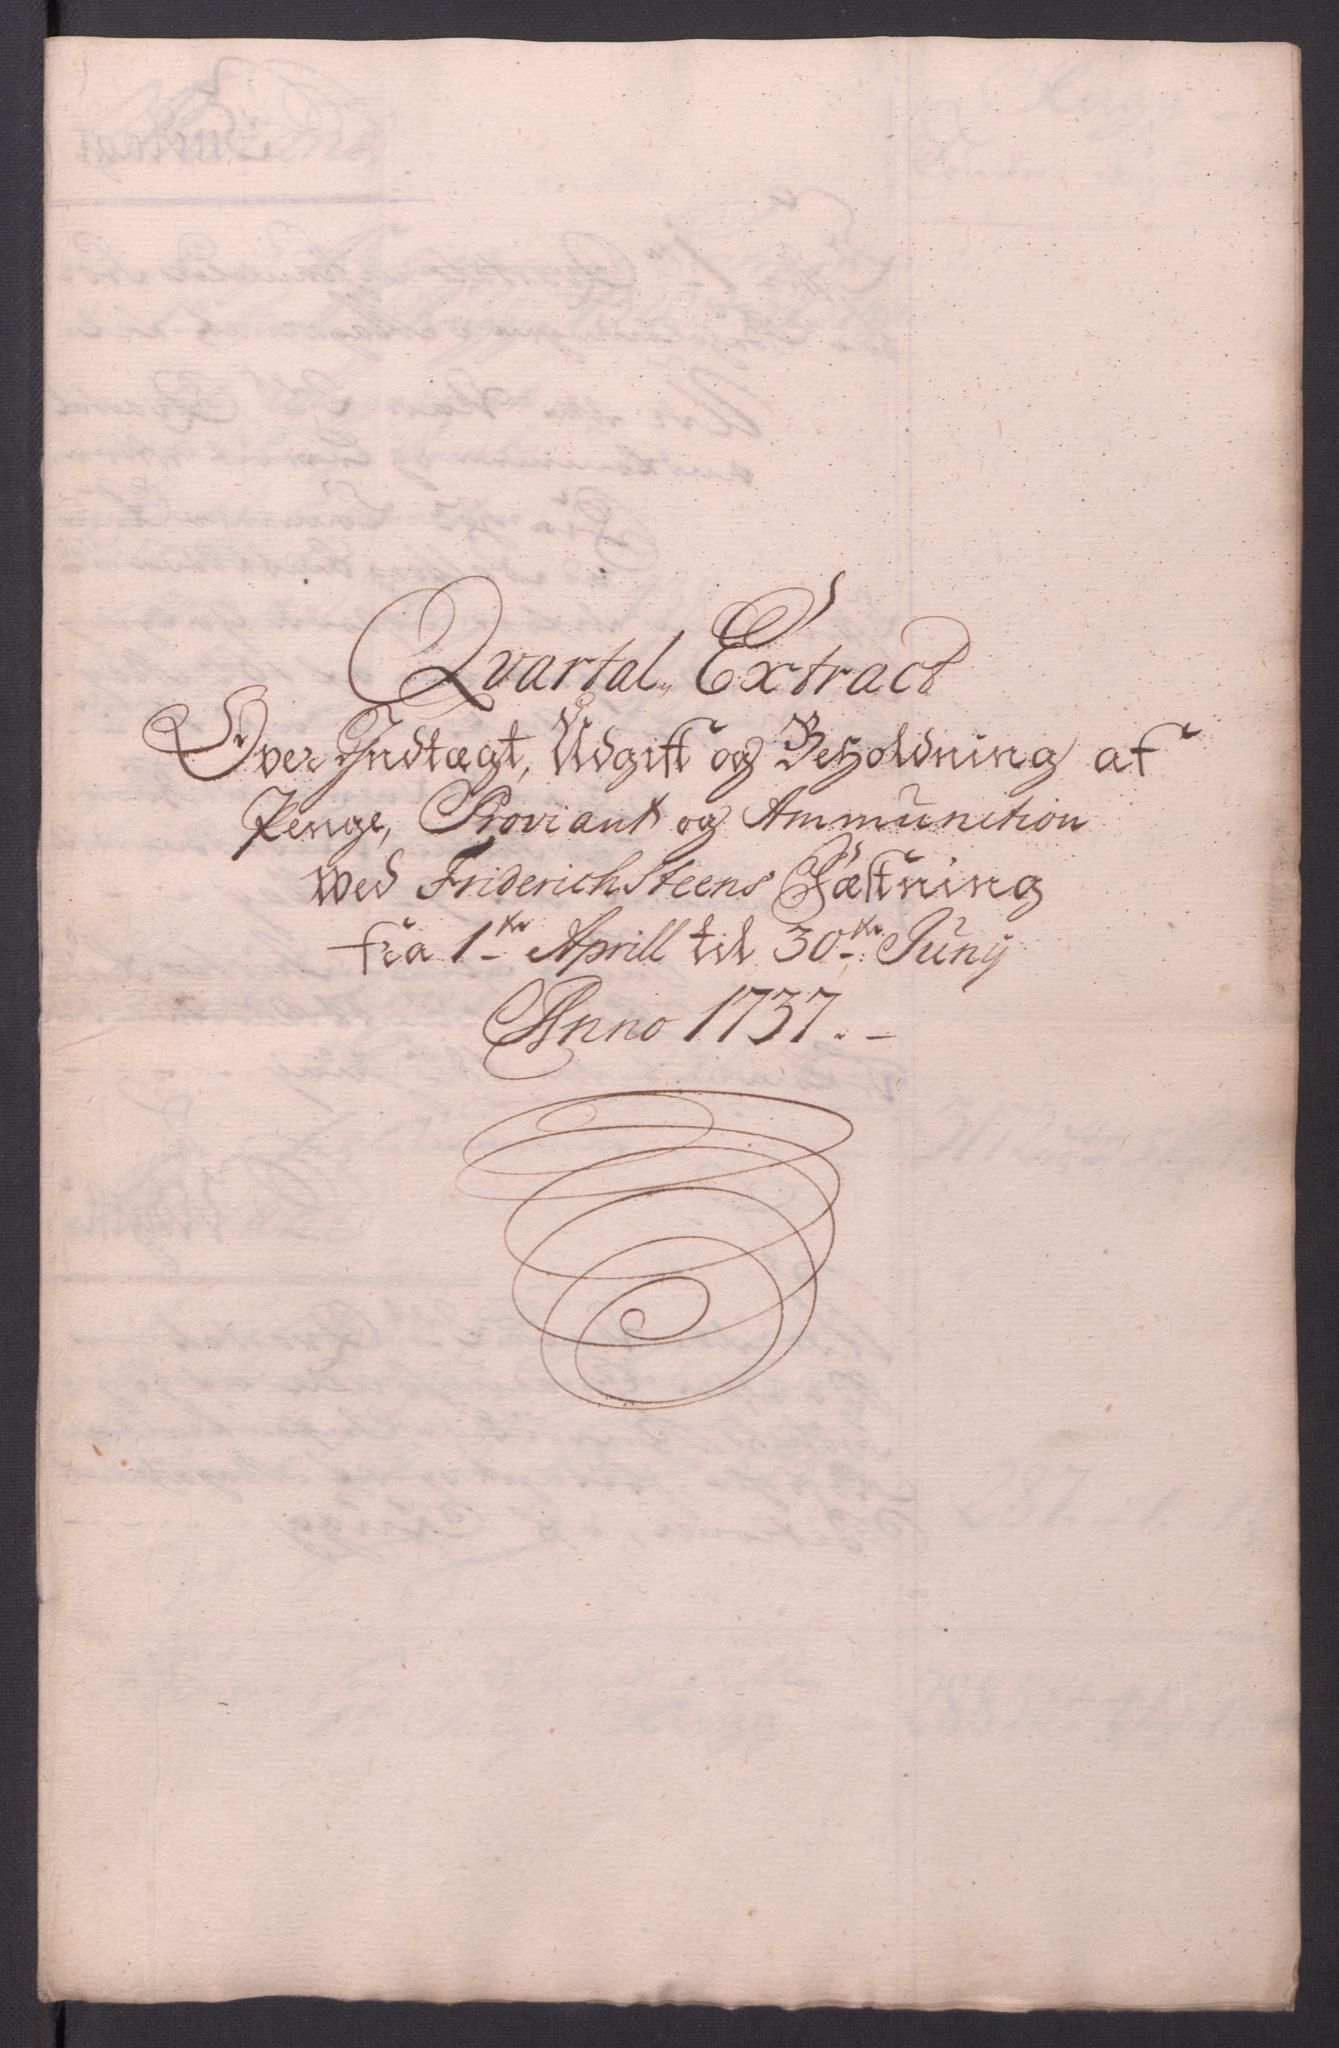 Qvartal Extract
Over Indtægt, Udgift og Beholdning af
Penge, Proviant og Ammunition
wed Friderichsteens Fæstning
fra 1te Aprill til 30te Junij
Anno 1737.